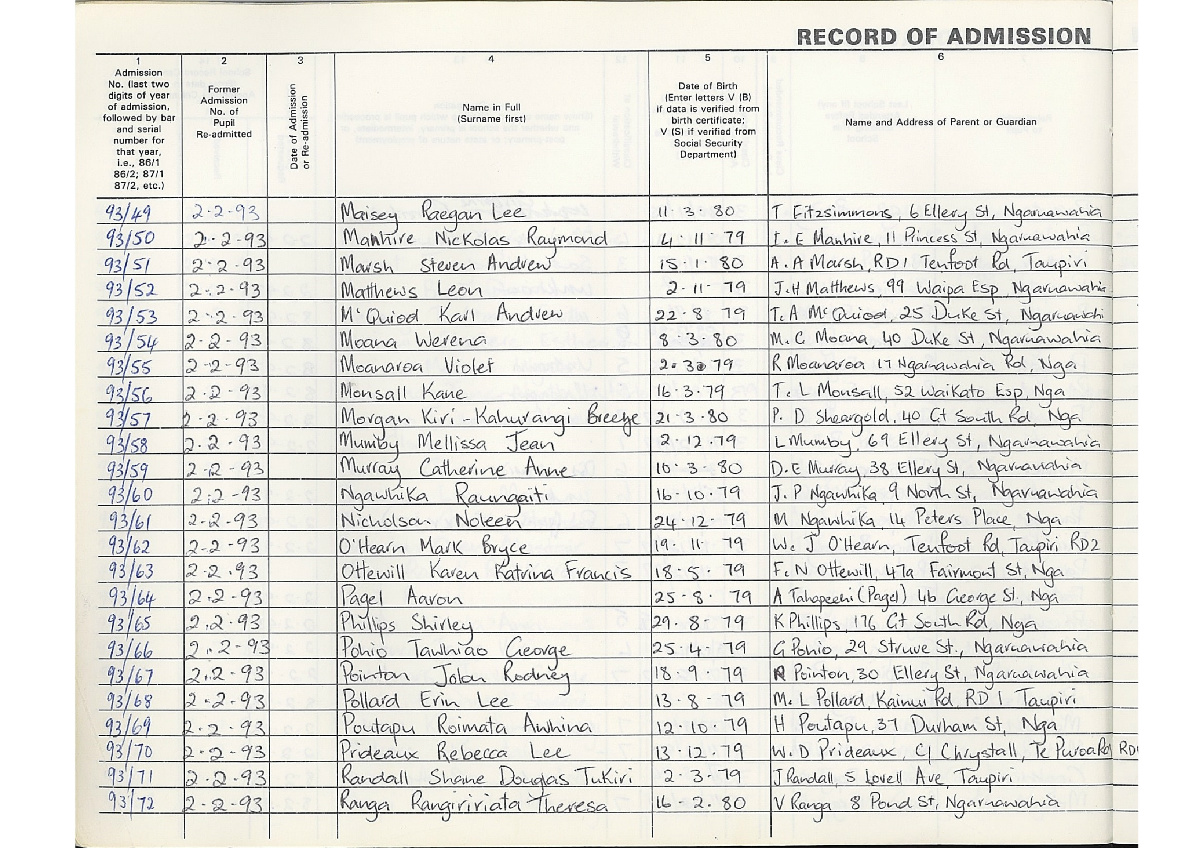 RECORD OF ADMISSION
1 2 3 4 5 6
Admission No. (last two digits of year of admission, followed by bar and serial number for that year, i.e., 86/1 86/2; 87/1 87/2, etc.)
Former Admission No. of Pupil Re-admitted
Date of Admission or Re-admission
Name in Full (Surname first)
Date of Birth (Enter letters V (B) if data is verified from birth certificate; V (S) if verified from Social Security Department)
Name and Address of Parent or Guardian
93/49 2-2-93 Maisey Raegan Lee 11·3·80 T Fitzsimmons, 6 Ellery St, Ngaruawahia
93/50 2-2-93 Manhire Nickolas Raymond 4·11·79 I. E Manhire, 11 Princess St, Ngaruawahia
93/51 2-2-93 Marsh Steven Andrew 15·1·80 A. A Marsh, RD1 Tenfoot Rd, Taupiri
93/52 2-2-93 Matthews Leon 2·11·79 J.H Matthews, 99 Waipa Esp, Ngaruawahia
93/53 2-2-93 McQuiod Karl Andrew 22·8·79 T. A McQuiod, 25 Duke St, Ngaruawahi
93/54 2-2-93 Moana Werena 8·3·80 M. C Moana, 40 Duke St, Ngaruawahia
93/55 2-2-93 Moanaroa Violet 2·3·79 R Moanaroa 17 Ngaruawahia Rd, Nga
93/56 2-2-93 Monsall Kane 16·3·79 T. L Monsall, 52 Waikato Esp, Nga
93/57 2-2-93 Morgan Kiri-Kahurangi Breeze 21·3·80 P. D Sheargold, 40 Gt South Rd, Nga
93/58 2-2-93 Mumby Mellissa Jean 2·12·79 L Mumby, 69 Ellery St, Ngaruawahia
93/59 2-2-93 Murray Catherine Anne 10·3·80 D. E Murray, 38 Ellery St, Ngaruawahia
93/60 2-2-93 Ngawhika Raungaiti 16·10·79 J. P Ngawhika 9 North St, Ngaruawahia
93/61 2-2-93 Nicholson Noleen 24·12·79 M Ngawhika, 14 Peters Place, Nga
93/62 2-2-93 O'Hearn Mark Bryce 19·11·79 W. J O'Hearn, Tenfoot Rd, Taupiri RD2
93/63 2-2-93 Ottewill Karen Katrina Francis 18·5·79 F. N Ottewill, 47a Fairmont St, Nga
93/64 2-2-93 Pagel Aaron 25·8·79 A (Pagel) 46 George St, Nga
93/65 2-2-93 Phillips Shirley 29·8·79 K Phillips, 176 Gt South Rd, Nga
93/66 2-2-93 Pohio Tawhiao George 25·4·79 G Pohio, 29 Struve St., Ngaruawahia
93/67 2-2-93 Pointon Jolon Rodney 18·9·79 R Pointon, 30 Ellery St, Ngaruawahia
93/68 2-2-93 Pollard Erin Lee 13·8·79 M. L Pollard, Kainui Rd, RD 1 Taupiri
93/69 2-2-93 Poutapu Roimata Awhina 12·10·79 H Poutapu, 37 Durham St, Nga
93/70 2-2-93 Prideaux Rebecca Lee 13·12·79 W. D Prideaux, C/ Chrystall, Te Puroa Rd RD
93/71 2-2-93 Randall Shane Douglas TuKiri 2·3·79 J Randall, 5 Lovell Ave, Taupiri
93/72 2-2-93 Ranga Rangiririata Theresa 16·2·80 V Ranga 8 Pond St, Ngaruawahia